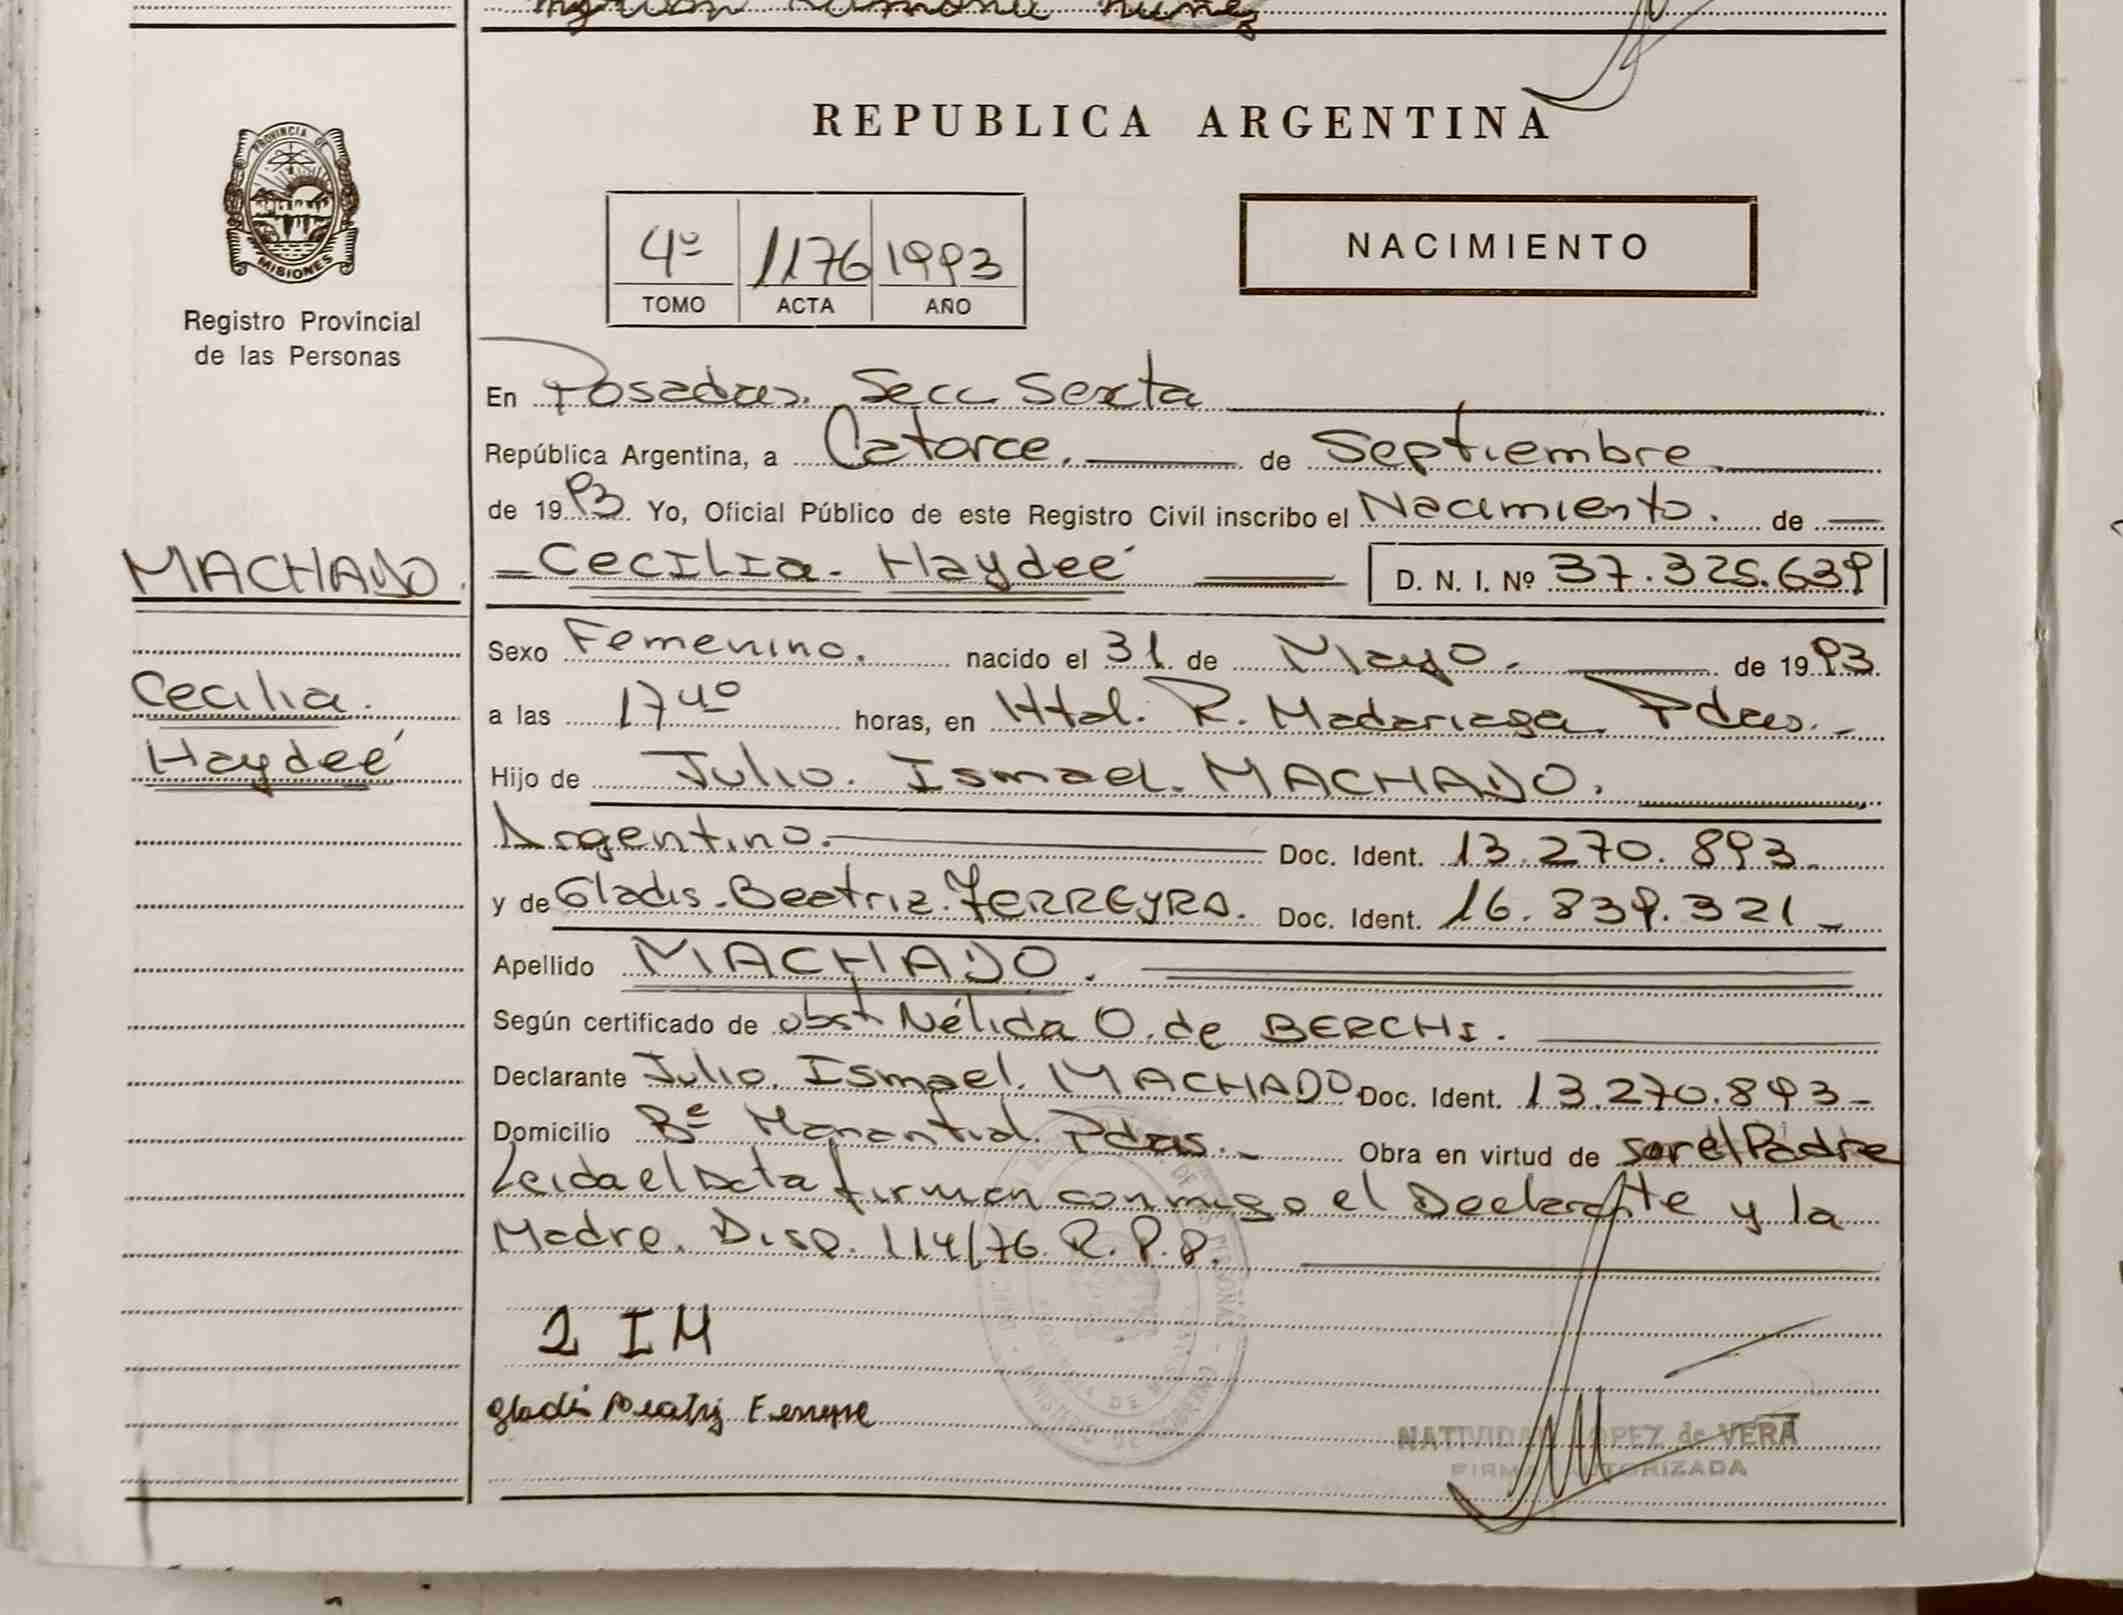 REPUBLICA ARGENTINA
PROVINCIA DE
MISIONES
Registro Provincial
de las Personas
4º 1176 1993
TOMO ACTA AÑO
NACIMIENTO
En Posadas. Secc Sexta
República Argentina, a Catorce. de Septiembre
de 1993 Yo, Oficial Público de este Registro Civil inscribo el Nacimiento. de
MACHADO.
Cecilia
Haydeé
Cecilia. Haydeé D. N. I. Nº 37.325.639
Sexo Femenino. nacido el 31 de Mayo. de 1993.
a las 17 40 horas, en Htal. R. Madariaga. Pdas.-
Hijo de Julio. Ismael. MACHADO.
Argentino. Doc. Ident. 13.270.893
y de Gladis. Beatriz. FERREYRA. Doc. Ident. 16.839.321
Apellido MACHADO.
Según certificado de obst Nélida O. de BERCHI.
Declarante Julio. Ismael. MACHADO Doc. Ident. 13.270.893
Domicilio Bº Manantial. Pdas. Obra en virtud de ser el Padre
Leida el Acta firman conmigo el Declarante y la
Madre. Disp. 114/76. R.P.P.
IM
Gladis Beatriz
NATIVIDAD LOPEZ de VERA
FIRMA AUTORIZADA